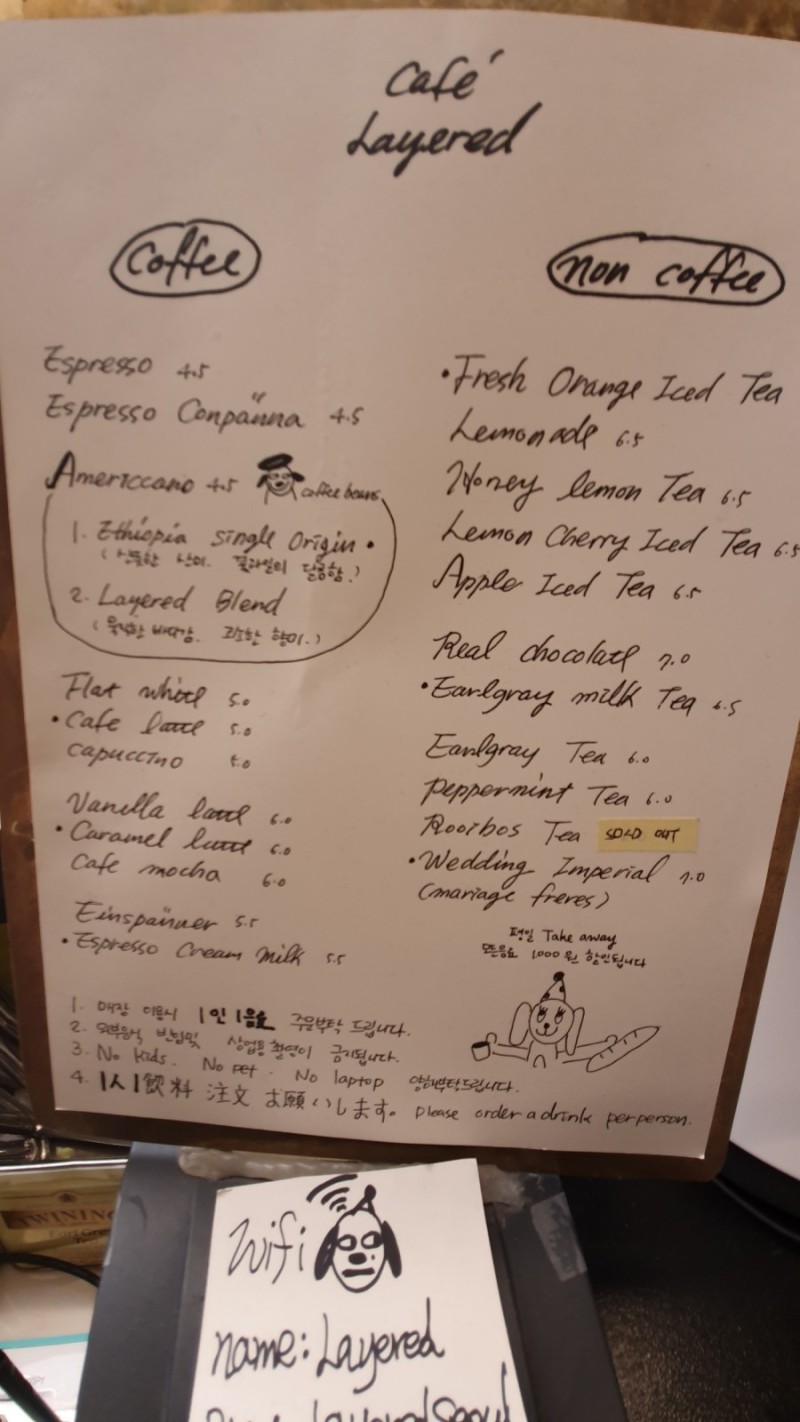 Café
Layered
Coffee
Espresso 4.5
Espresso Conpänna 4.5
Americcano 4.5 coffee beans
1. Ethiopia Single Origin •
(산뜻한 산미. 달콤함.)
2. Layered Blend
(묵직한 바디감. 고소한 향미.)
Flat white 5.0
• Cafe latte 5.0
capuccino 5.0
Vanilla latte 6.0
• Caramel latte 6.0
Cafe mocha 6.0
Einspänner 5.5
• Espresso Cream Milk 5.5
non coffee
• Fresh Orange Iced Tea
Lemonade 6.5
Honey lemon Tea 6.5
Lemon Cherry Iced Tea 6.5
Apple Iced Tea 6.5
Real chocolate 7.0
• Earlgray milk Tea 6.5
Earlgray Tea 6.0
Peppermint Tea 6.0
Rooibos Tea SOLD OUT
• Wedding Imperial 7.0
(mariage freres)
평일 Take away
모든음료 1000원 할인됩니다
1. 매장 이용시 1인 1음료 주문부탁 드립니다.
2. 외부음식 반입및 상업용 촬영이 금지됩니다.
3. No kids. No pet. No laptop 양해부탁드립니다.
4. 1人1飲料 注文 お願いします。 please order a drink per person.
TWININGS
Wifi
name: Layered